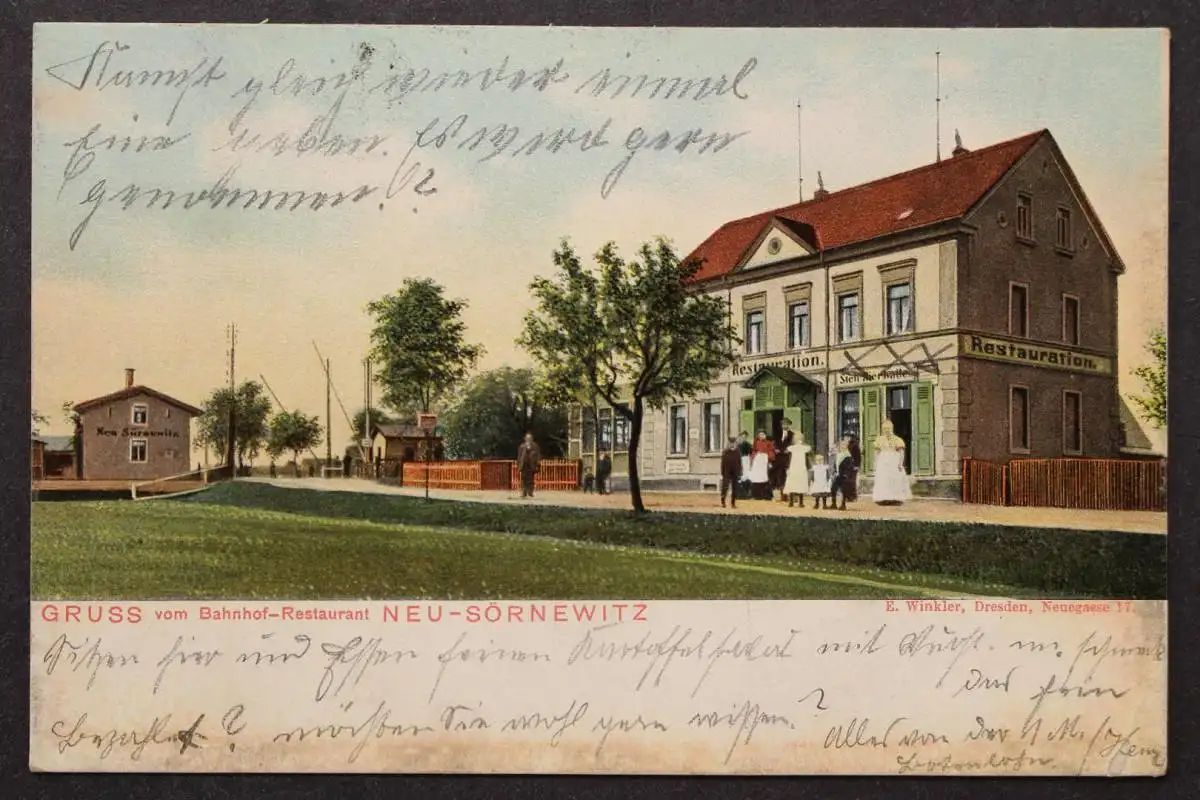 Kumst gleich wieder einmal
Eine neben. Es wird gern
genommen!?
Restauration.
Restauration.
Stehbierhalle
Neu Sörnewitz
GRUSS vom Bahnhof-Restaurant NEU-SÖRNEWITZ
E. Winkler, Dresden, Neuegasse 17.
Sitzen hier und Essen feinen Kartoffelsalat mit Wurst. un. schmeckt
das fein
Bezahlt? möchten Sie wohl gern wissen?
Alles von der 1 M.
Botenlohn.